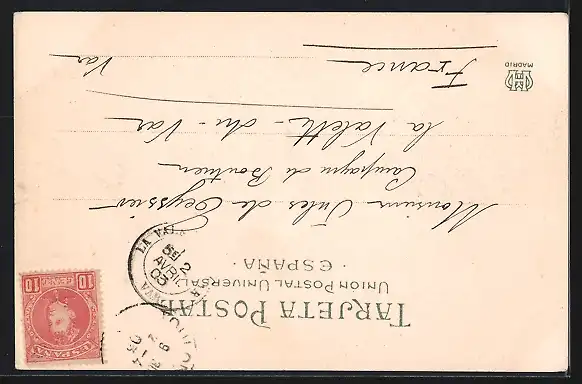 TARJETA POSTAL
UNION POSTAL UNIVERSAL
· ESPAÑA ·
Monsieur Jules de Teyssier
Campagne de
La Valette - du - Var
Var
France
MADRID
ESPAÑA
10 CENT. 10
LA VALETTE
2
AVRIL
03
VAR